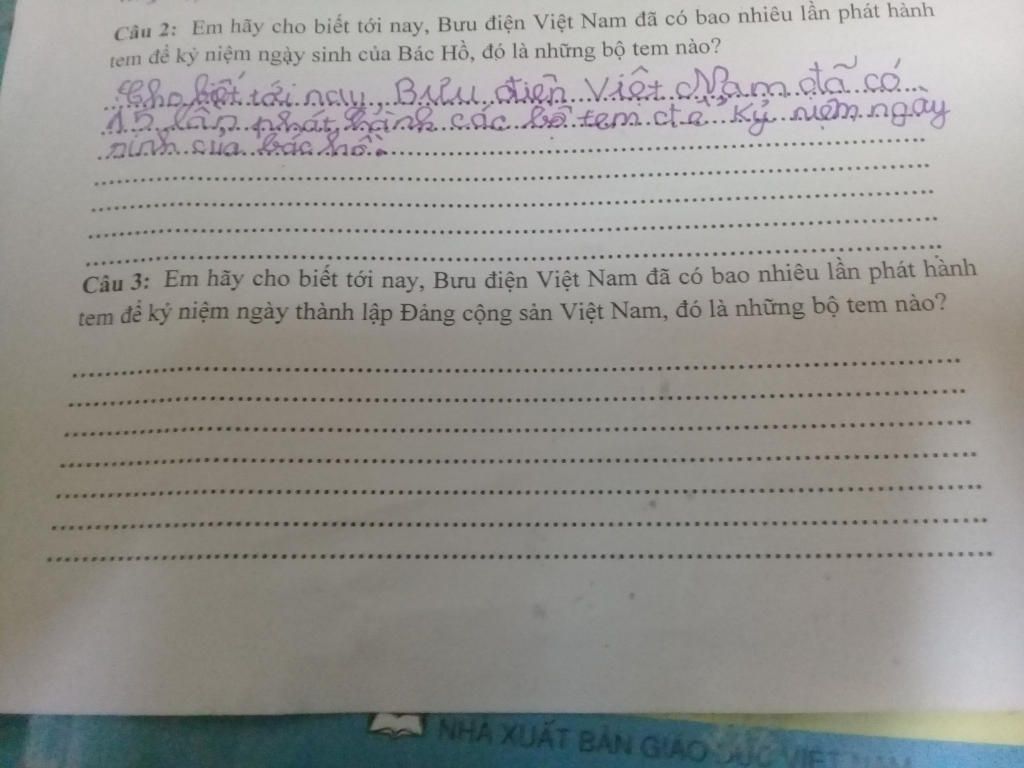 Câu 2: Em hãy cho biết tới nay, Bưu điện Việt Nam đã có bao nhiêu lần phát hành
tem để kỷ niệm ngày sinh của Bác Hồ, đó là những bộ tem nào?
Cho biết tới nay, Bưu điện Việt Nam đã có
15 lần phát hành các bộ tem để kỷ niệm ngày
sinh của bác hồ.
Câu 3: Em hãy cho biết tới nay, Bưu điện Việt Nam đã có bao nhiêu lần phát hành
tem để kỷ niệm ngày thành lập Đảng cộng sản Việt Nam, đó là những bộ tem nào?
NHÀ XUẤT BẢN GIÁO DỤC VIỆT NAM